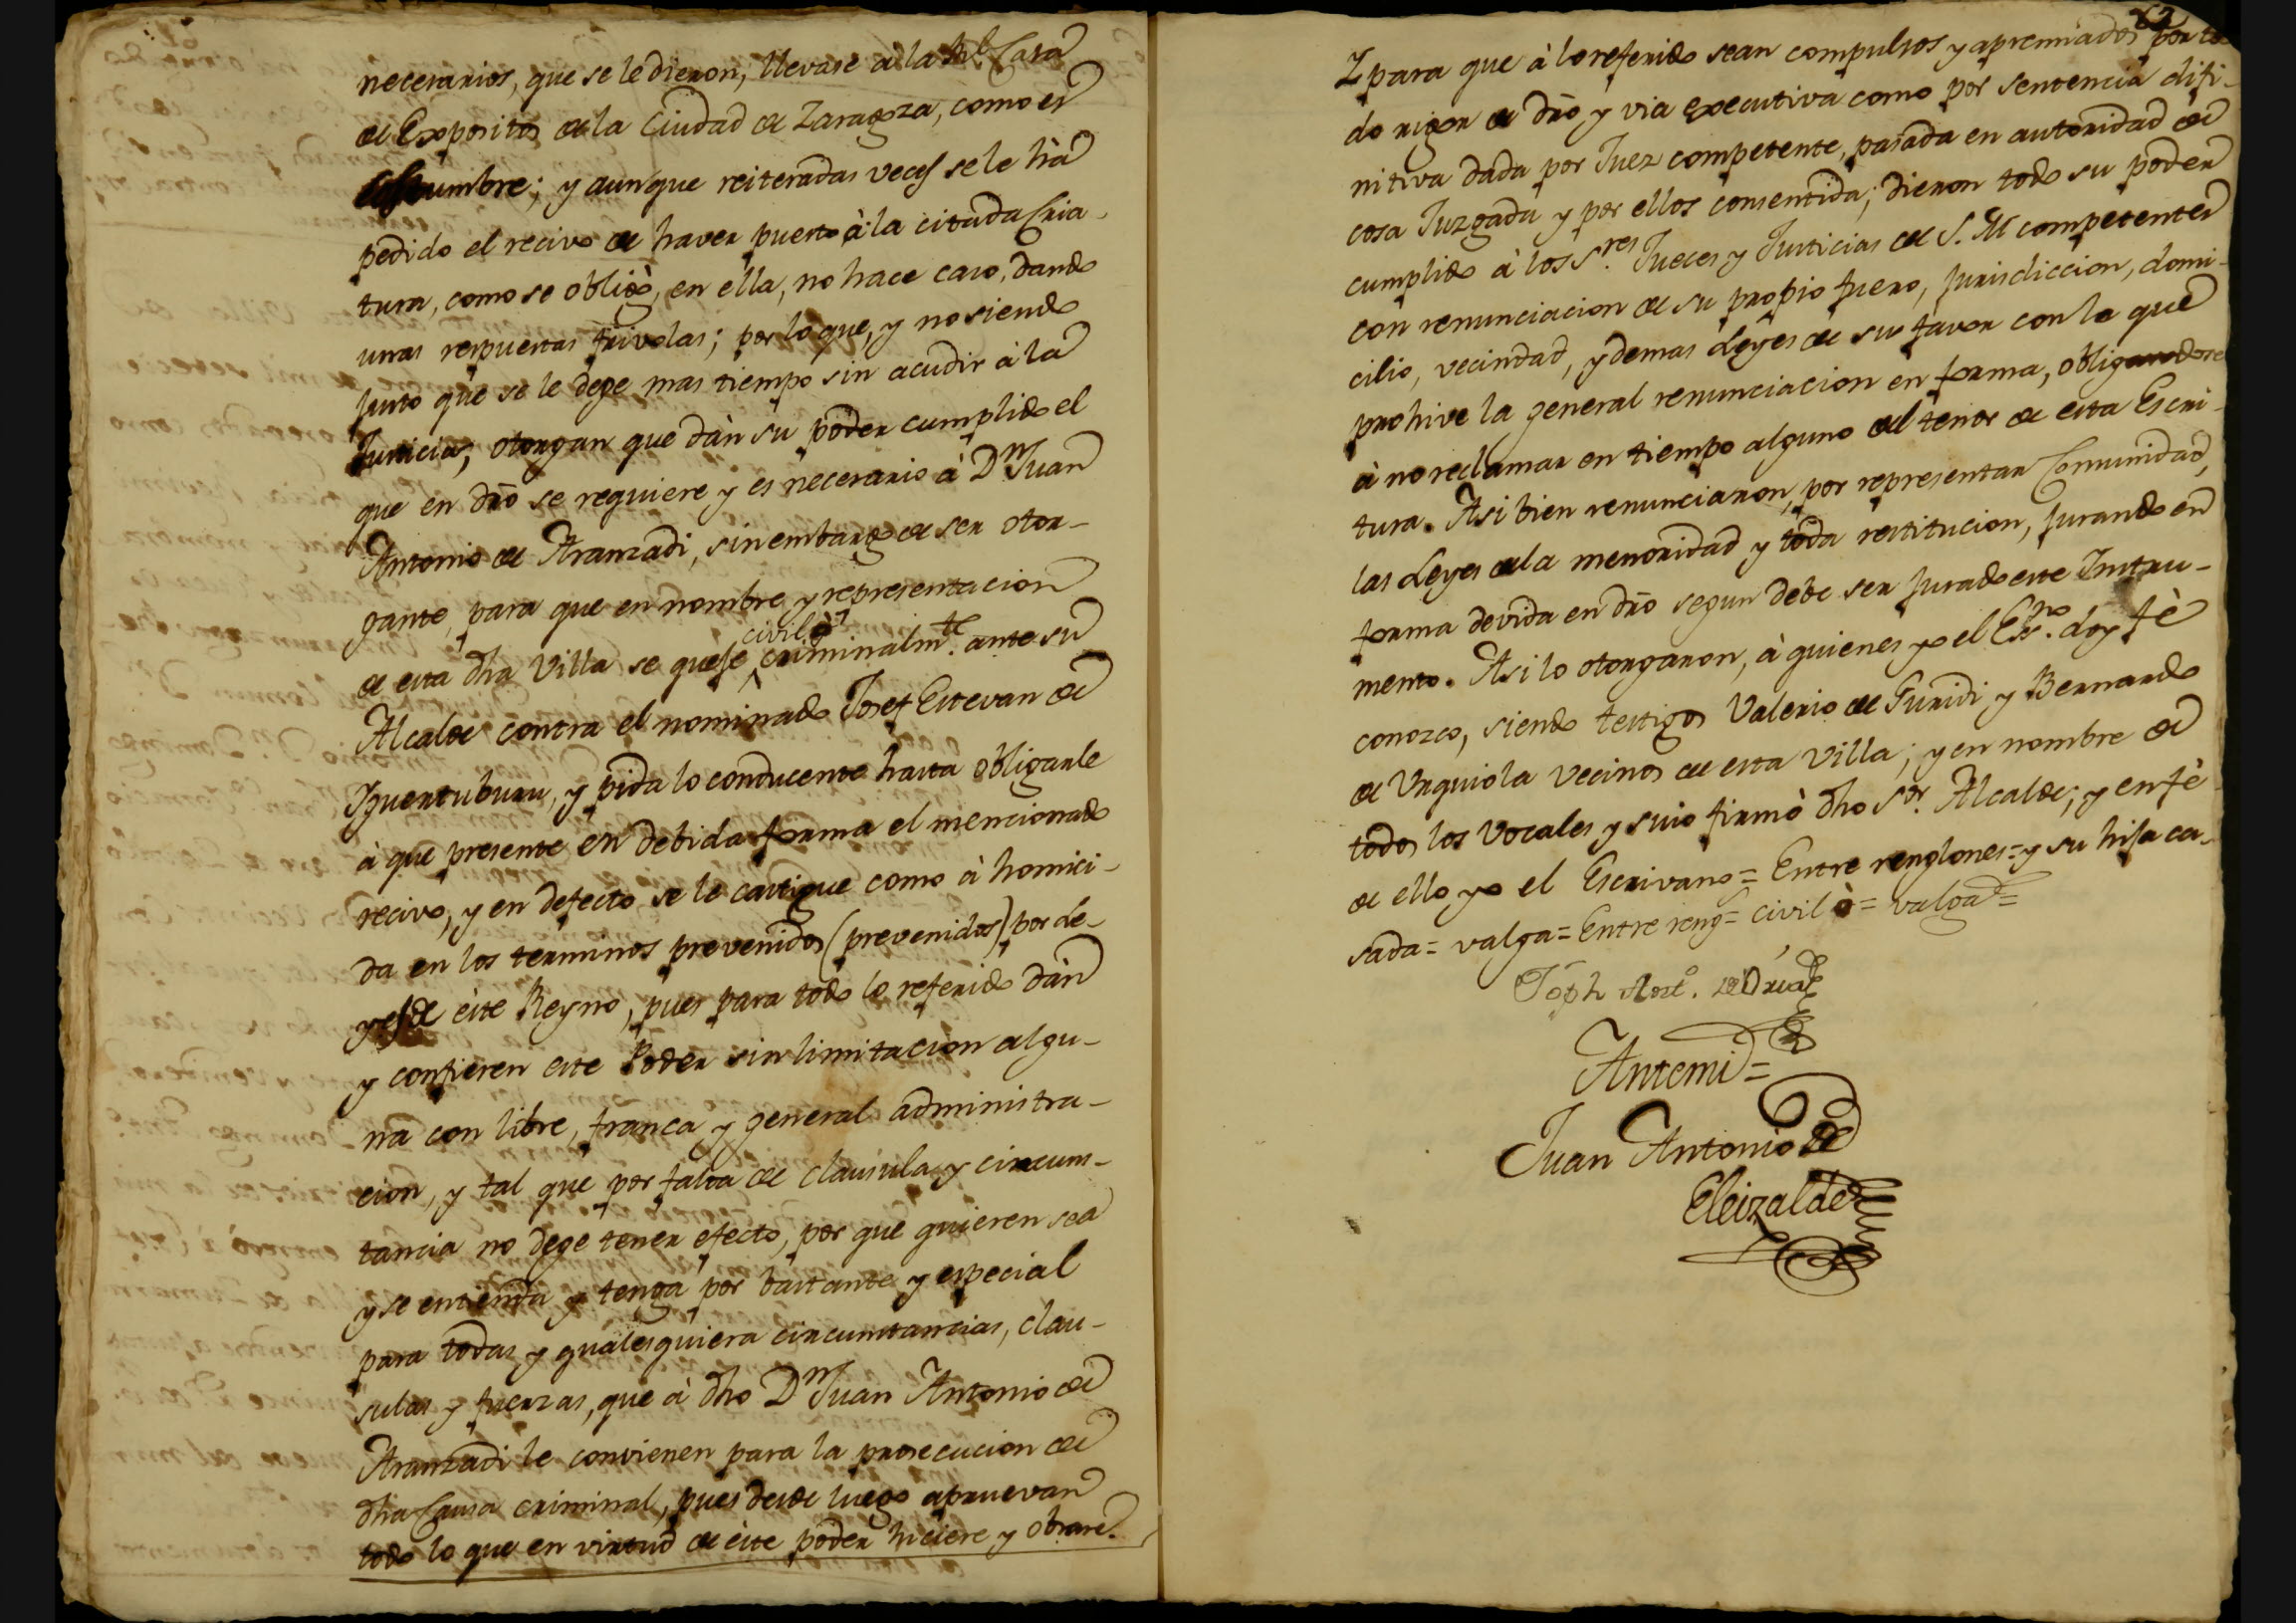 necesarios, que se le dieron, llevase à la Rl. Casa
de Expositos de la Ciudad de Zaragoza, como es
costumbre; y aunque reiteradas veces se le hà
pedido el recivo de haver puesto à la citada Cria-
tura, como se obligò, en ella, no hace caso, dando
unas respuestas frivolas; por lo que, y no siendo
justo que se le dege mas tiempo sin acudir à la
Justicia, otorgan que dàn su poder cumplido el
que en dro se requiere y es necesario à Dn. Juan
Antonio de Aranzadi, sin embargo de ser otor-
gante, para que en nombre y representacion
de esta dha Villa se queje civil ò criminalmte. ante su
Alcalde contra el nominado Josef Estevan de
Yguertuburu, y pida lo conducente hasta obligarle
à que presente en debida forma el mencionado
recivo, y en defecto se le castigue como à homici-
da en los terminos prevenidos (prevenidos) por le-
yes de èste Reyno, pues para todo lo referido dàn
y confieren este Poder sin limitacion algu-
na con libre, franca y general administra-
cion, y tal que por falta de clausula y circuns-
tancia no dege tener efecto, por que quieren sea
y se entienda y tenga por bastante y especial
para todas y qualesquiera circunstancias, clau-
sulas y fuerzas, que à dho Dn. Juan Antonio de
Aranzadi le convienen para la prosecucion de
dha Causa criminal, pues desde luego aprueván
todo lo que en virtud de èste poder hiciere y obrare.
Y para que à lo referido sean compulsos y apremiados por to
do rigor de dro y via executiva como por sentencia difi-
nitiva dada por Juez competente, pasada en autoridad de
cosa Juzgada y por ellos consentida; dieron todo su poder
cumplido à los Sres. Jueces y Justicias de S. M competentes
con renunciacion de su propio fuero, jurisdiccion, domi-
cilio, vecindad, y demas Leyes de su favor con la que
prohive la general renunciacion en forma, obligandose
à no reclamar en tiempo alguno del tenor de esta Escri-
tura. Asi bien renunciaron, por representar Comunidad,
las Leyes de la menoridad y toda restitucion, jurando en
forma devida en dro segun debe ser jurado este Instru-
mento. Asi lo otorgaron, à quienes yo el Essno. doy fè
conozco, siendo testigos Valerio de Guridi y Bernardo
de Urquiola Vecinos de esta Villa; y en nombre de
todos los Vocales y suio firmò dho Sor. Alcalde; y en fè
de ello yo el Escrivano = Entre renglones = y su hija ca-
sada = valga = Entre reng = civil ò = valga =
Antemi =
Juan Antonio de
Eleizalde